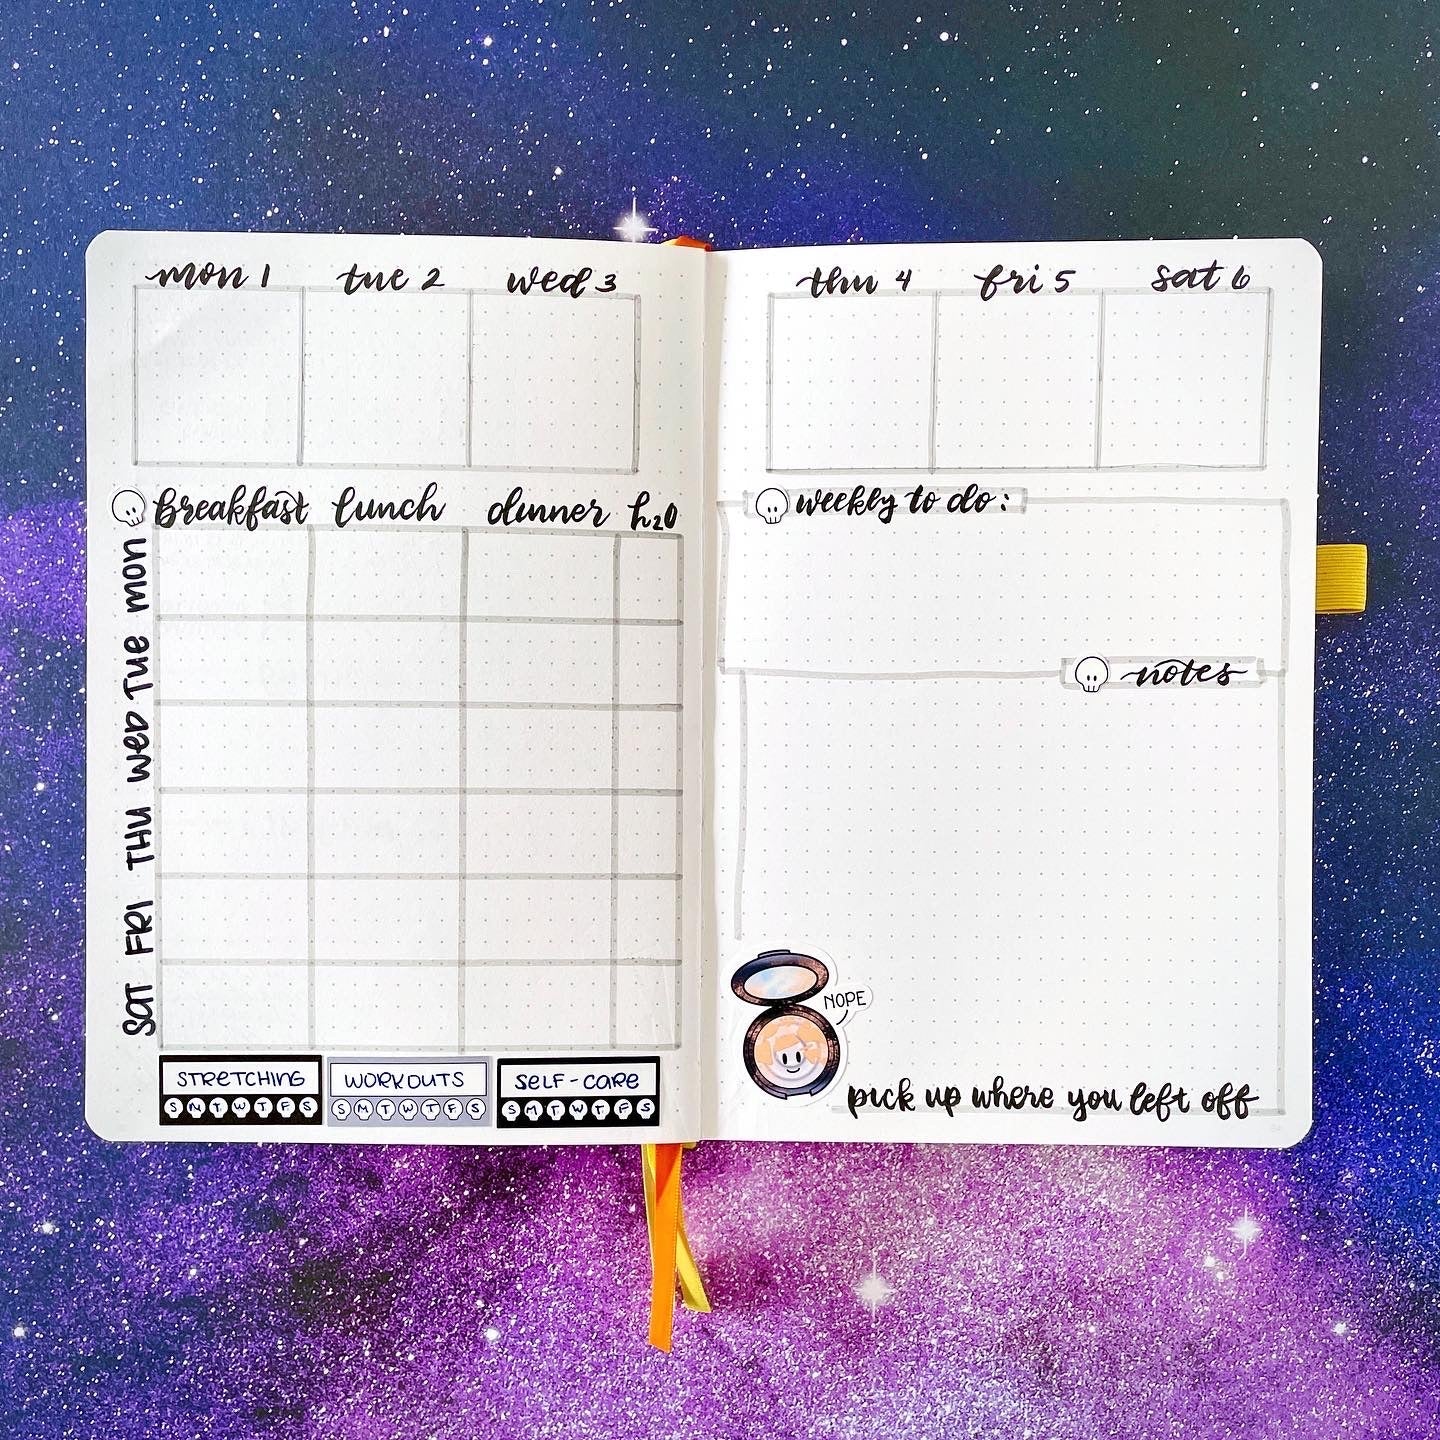 mon 1 tue 2 wed 3
breakfast lunch dinner h₂O
mon
Tue
weD
THU
FRI
SAT
STRETCHING
S M T W T F S
WORKOUTS
S M T W T F S
SELF-CARE
S M T W T F S
thu 4 fri 5 sat 6
weekly to do:
notes
NOPE
pick up where you left off